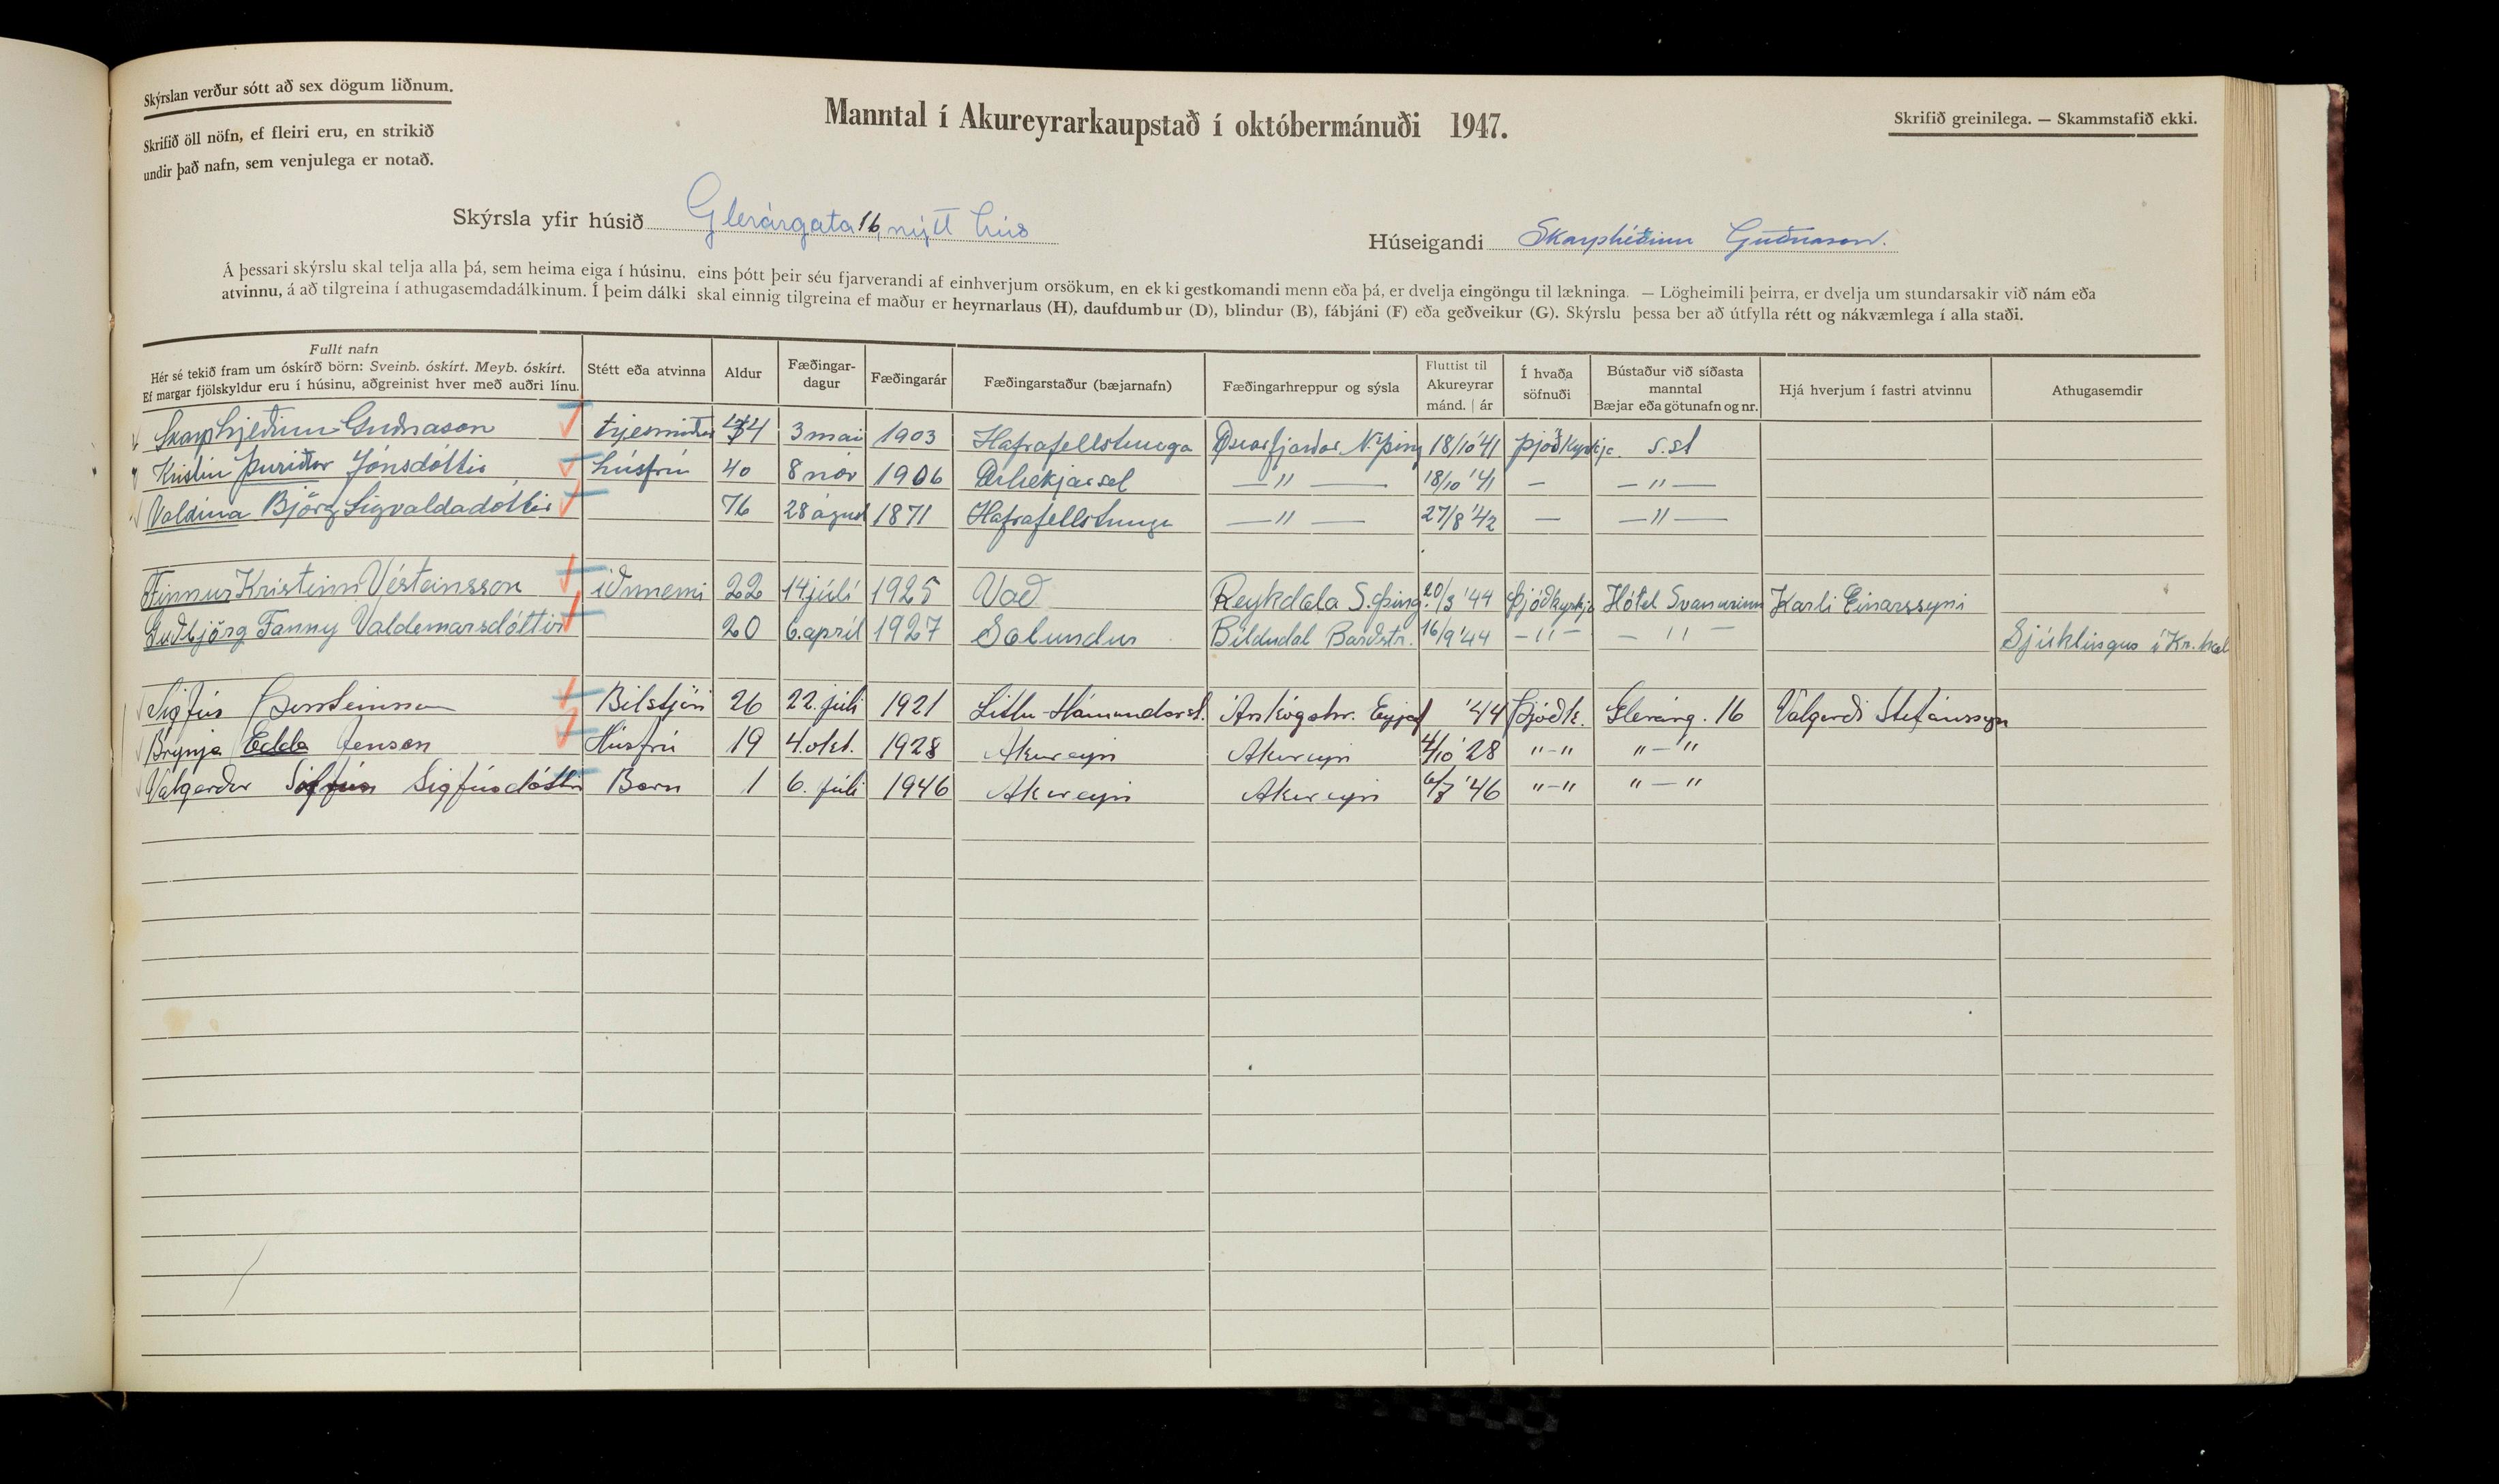 Skýrslan verður sótt að sex dögum liðnum.
Skrifið öll nöfn, ef fleiri eru, en strikið
undir það nafn, sem venjulega er notað.
Manntal í Akureyrarkaupstað í októbermánuði 1947.
Skrifið greinilega. — Skammstafið ekki.
Skýrsla yfir húsið Glerárgata 16, nýtt hús
Húseigandi Skarphéðinn Guðnason.
Á þessari skýrslu skal telja alla þá, sem heima eiga í húsinu, eins þótt þeir séu fjarverandi af einhverjum orsökum, en ekki gestkomandi menn eða þá, er dvelja eingöngu til lækninga. — Lögheimili þeirra, er dvelja um stundarsakir við nám eða
atvinnu, á að tilgreina í athugasemdadálkinum. Í þeim dálki skal einnig tilgreina ef maður er heyrnarlaus (H), daufdumbur (D), blindur (B), fábjáni (F) eða geðveikur (G). Skýrslu þessa ber að útfylla rétt og nákvæmlega í alla staði.
Fullt nafn Hér sé tekið fram um óskírð börn: Sveinb. óskírt. Meyb. óskírt. Ef margar fjölskyldur eru í húsinu, aðgreinist hver með auðri línu. Stétt eða atvinna Aldur Fæðingar-dagur Fæðingarár Fæðingarstaður (bæjarnafn) Fæðingarhreppur og sýsla Fluttist til Akureyrar mánd. | ár Í hvaða söfnuði Bústaður við síðasta manntal Bæjar eða götunafn og nr. Hjá hverjum í fastri atvinnu Athugasemdir
Skarphjeðinn Guðnason trjesmiður 44 3 mai 1903 Hafrafellstunga N. þing 18/10 '41 þjóðkyrkja s.st
Kristín Þuríður Jónsdóttir húsfrú 40 8 nóv 1906 — " — 18/10 '41 — — " —
Valdína Björg Sigvaldadóttir 76 28 águst 1871 Hafrafellstunga — " — 27/8 '42 — — " —
Finnur Kristinn Vésteinsson iðnnemi 22 14 júlí 1925 Vað Reykdæla S. Þing. 20/3 '44 Þjóðkyrkja Hótel Svanurinn Karli Einarssyni
Guðbjörg Fanny Valdemarsdóttir 20 6. apríl 1927 Sælundur Bíldudal Barðstr. 16/9 '44 — " — — " — Sjúklingur í Kr.hæl
Sigfús Bernsteinsson Bílstjóri 26 22. júlí 1921 Litlu-Hámundarst. Árskógshr. Eyjaf '44 Þjóðk. Glerárg. 16 Valgarði Stefánssyni
Brynja Edda Jensen Húsfrú 19 4. okt. 1928 Akureyri Akureyri 4/10 '28 "—" "—"
Valgerður Sigfúsdóttir Barn 1 6. júlí 1946 Akureyri Akureyri 6/7 '46 "—" "—"